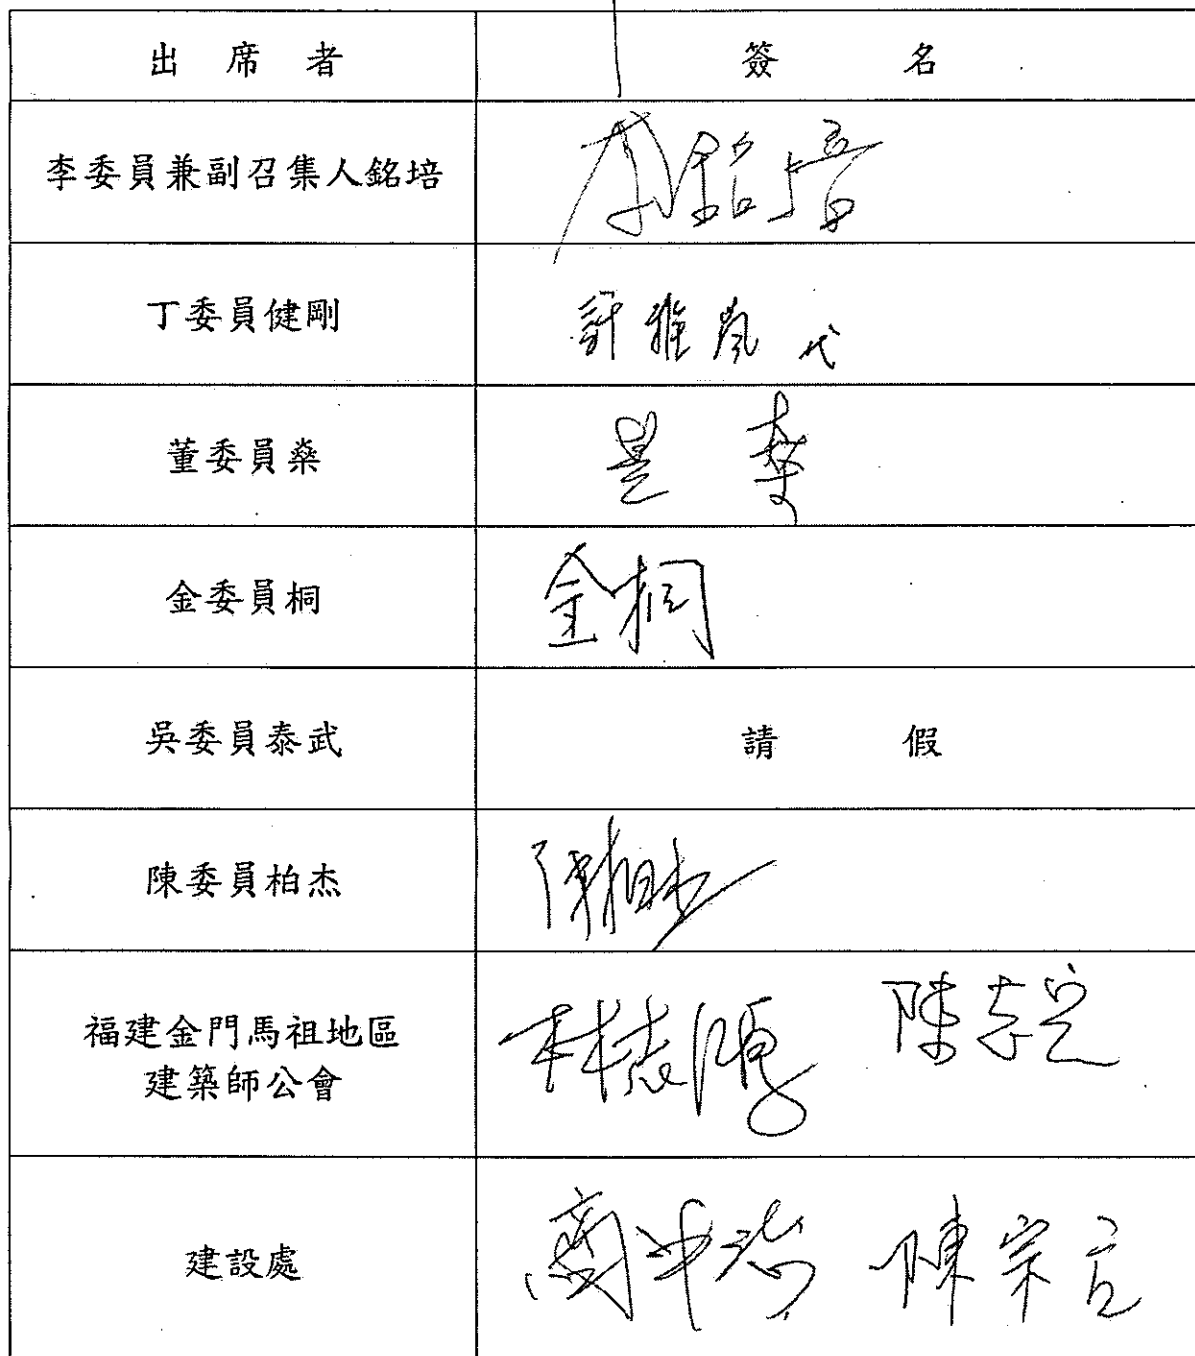 出席者 簽名
李委員兼副召集人銘培 李銘培
丁委員健剛 許雅嵐 代
董委員燊 燊
金委員桐 金桐
吳委員泰武 請假
陳委員柏杰 陳柏杰
福建金門馬祖地區
建築師公會 林志鴻
建設處 陳宗